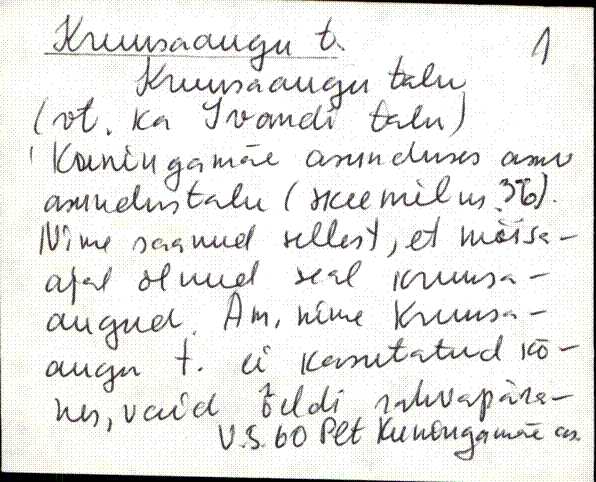 Kruusaaugu t. 1
Kruusaaugu talu
(vt. ka Ivandi talu)
Kuningamäe asunduses asuv
asundustalu (skeemil us. 36).
Nime saanud sellest, et mõisa-
ajal olnud seal kruusa-
augud. Am. nime Kruusa-
augu t. ei kasutatud kõ-
nes, vaid öeldi rahvapära-
V.S. 60 Plt Kuningamäe as.